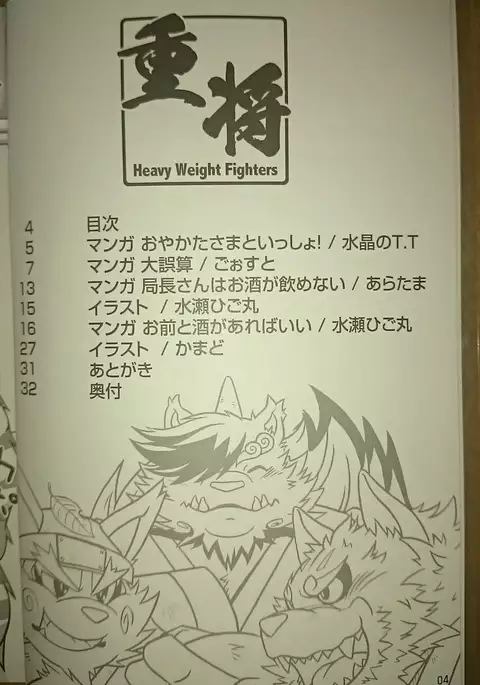 重将
Heavy Weight Fighters
4 目次
5 マンガ おやかたさまといっしょ! / 水晶のT.T
7 マンガ 大誤算 / ごぉすと
13 マンガ 局長さんはお酒が飲めない / あらたま
15 イラスト / 水瀬ひご丸
16 マンガ お前と酒があればいい / 水瀬ひご丸
27 イラスト / かまど
31 あとがき
32 奥付
04